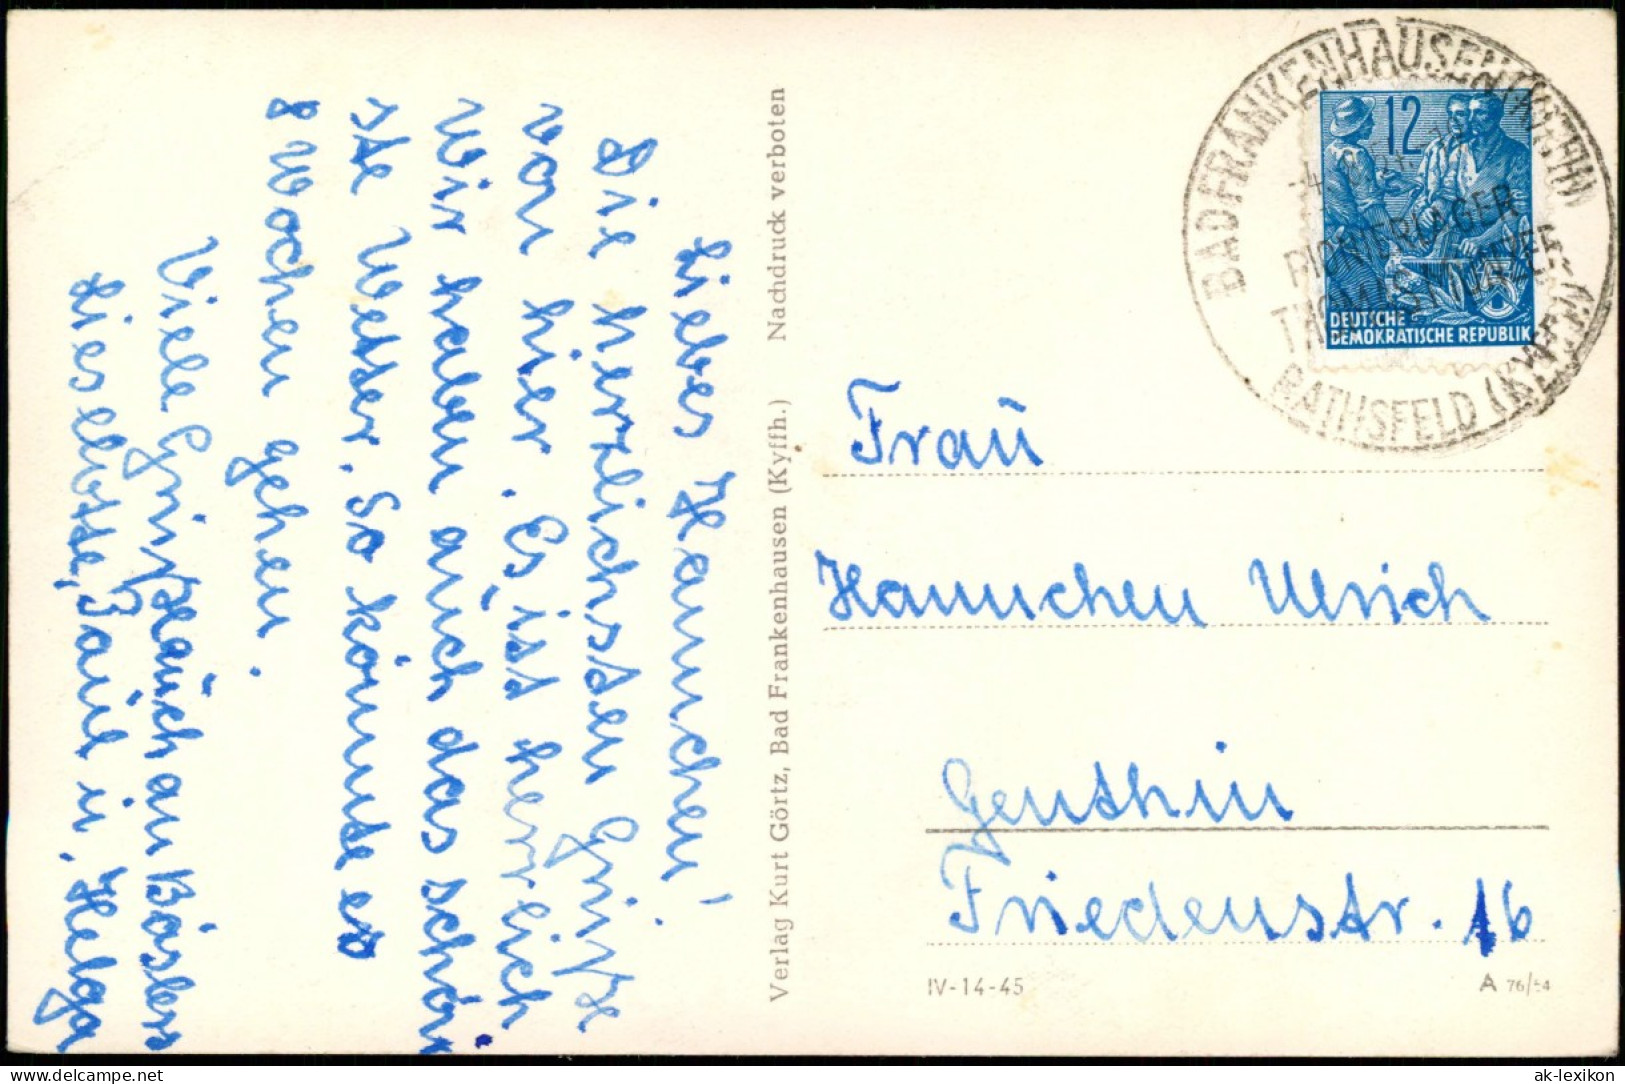 Liebes Hannchen!
Die herzlichsten Grüße
von hier. Es ist herrlich
Wir haben auch das schön
ste Wetter. So könnte es
8 Wochen gehen.
Viele Grüße auch an Böslers
Lieselotte, Paul u. Helga
Verlag Kurt Görtz, Bad Frankenhausen (Kyffh.) Nachdruck verboten
BAD FRANKENHAUSEN (KYFFH)
12
PIONIERLAGER
THOMAS MÜNTZER
RATHSFELD (KYFFH)
DEUTSCHE
DEMOKRATISCHE REPUBLIK
Frau
Hannchen Ulrich
Genthin
Friedenstr. 16
IV-14-45
A 76/54
ak-lexikon